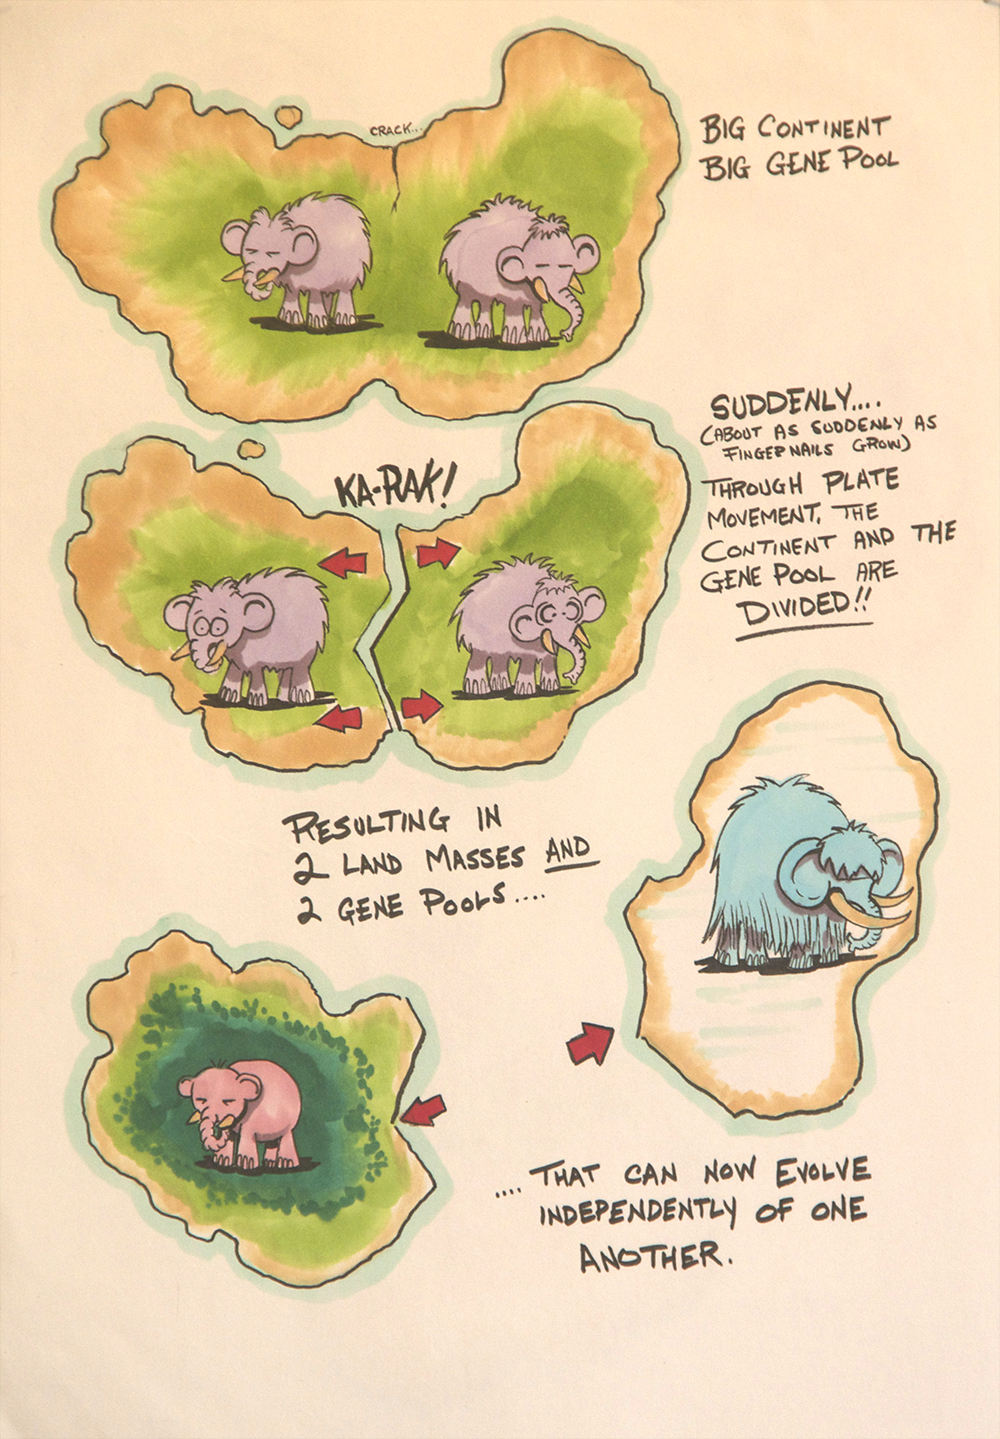 CRACK...
BIG CONTINENT
BIG GENE POOL
SUDDENLY....
(ABOUT AS SUDDENLY AS
FINGERNAILS GROW)
KA-RAK!
THROUGH PLATE
MOVEMENT, THE
CONTINENT AND THE
GENE POOL ARE
DIVIDED!!
RESULTING IN
2 LAND MASSES AND
2 GENE POOLS....
.... THAT CAN NOW EVOLVE
INDEPENDENTLY OF ONE
ANOTHER.